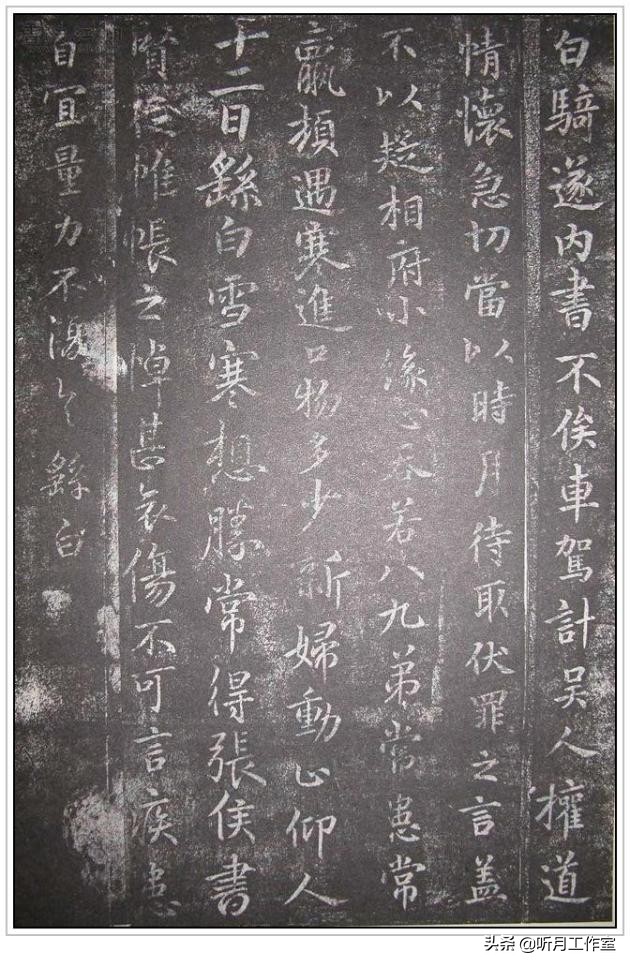 白騎遂内書不俟車駕計吴人權道
情懷急切當以時月待取伏罪之言盖
不以疑相府小緣心若八九弟常患常
羸頓遇寒進口物多少新婦動止仰人
十二日繇白雪寒想勝常得張侯書
賢從帷帳之悼甚哀傷不可言疾患
自宜量力不復々繇白
头条 @听月工作室